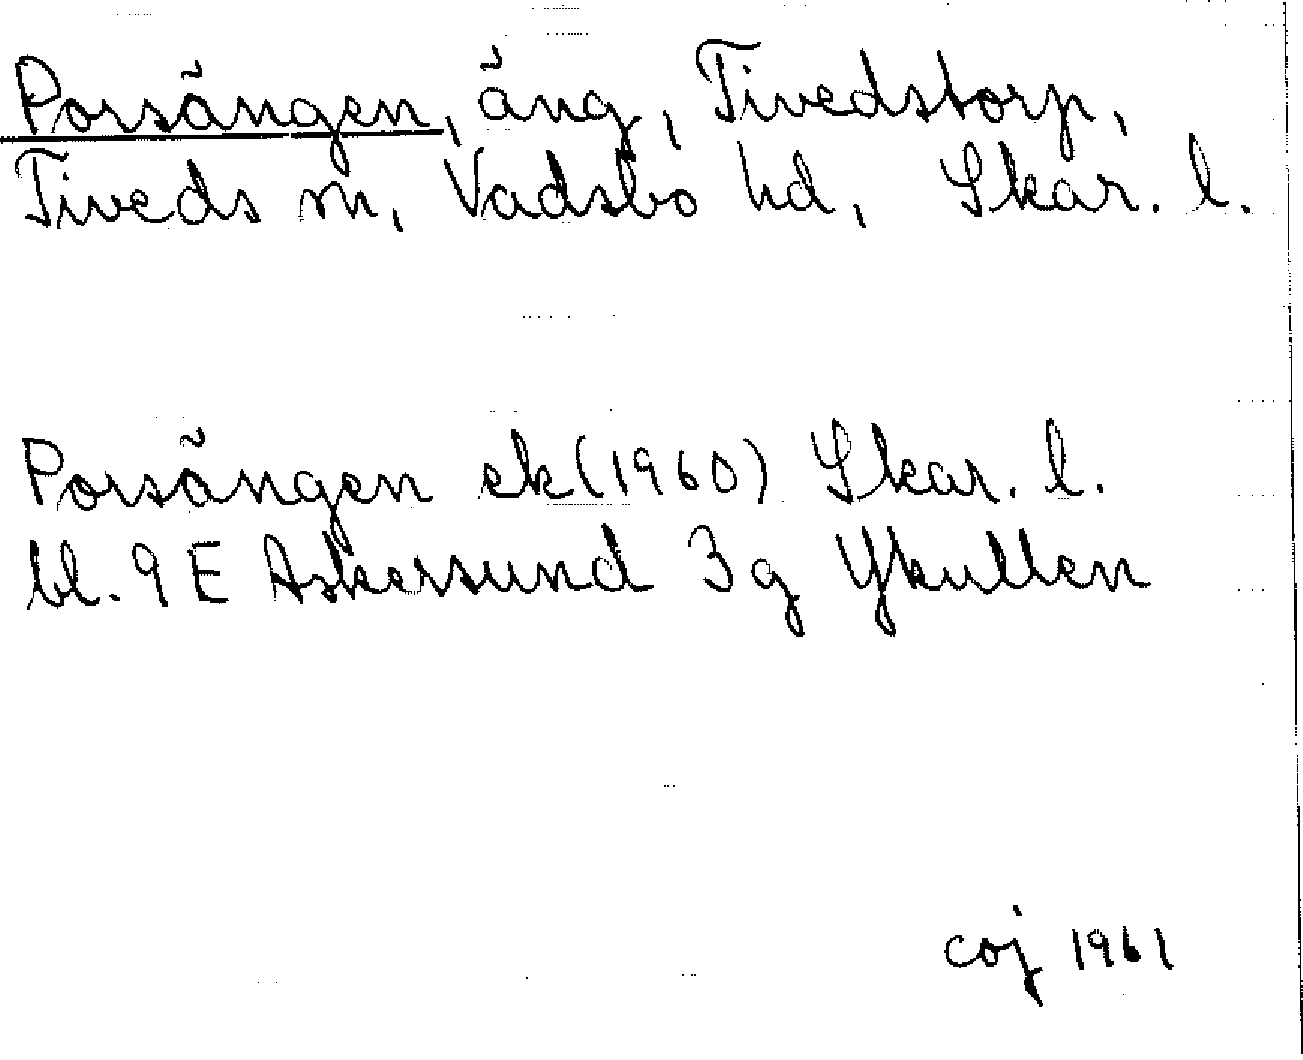 Porsängen, äng, Tivedstorp,
Tiveds sn, Vadsbo hd, Skar. l.
Porsängen ek(1960) Skar. l.
bl. 9 E Askersund 3g Ykullen
coj 1961